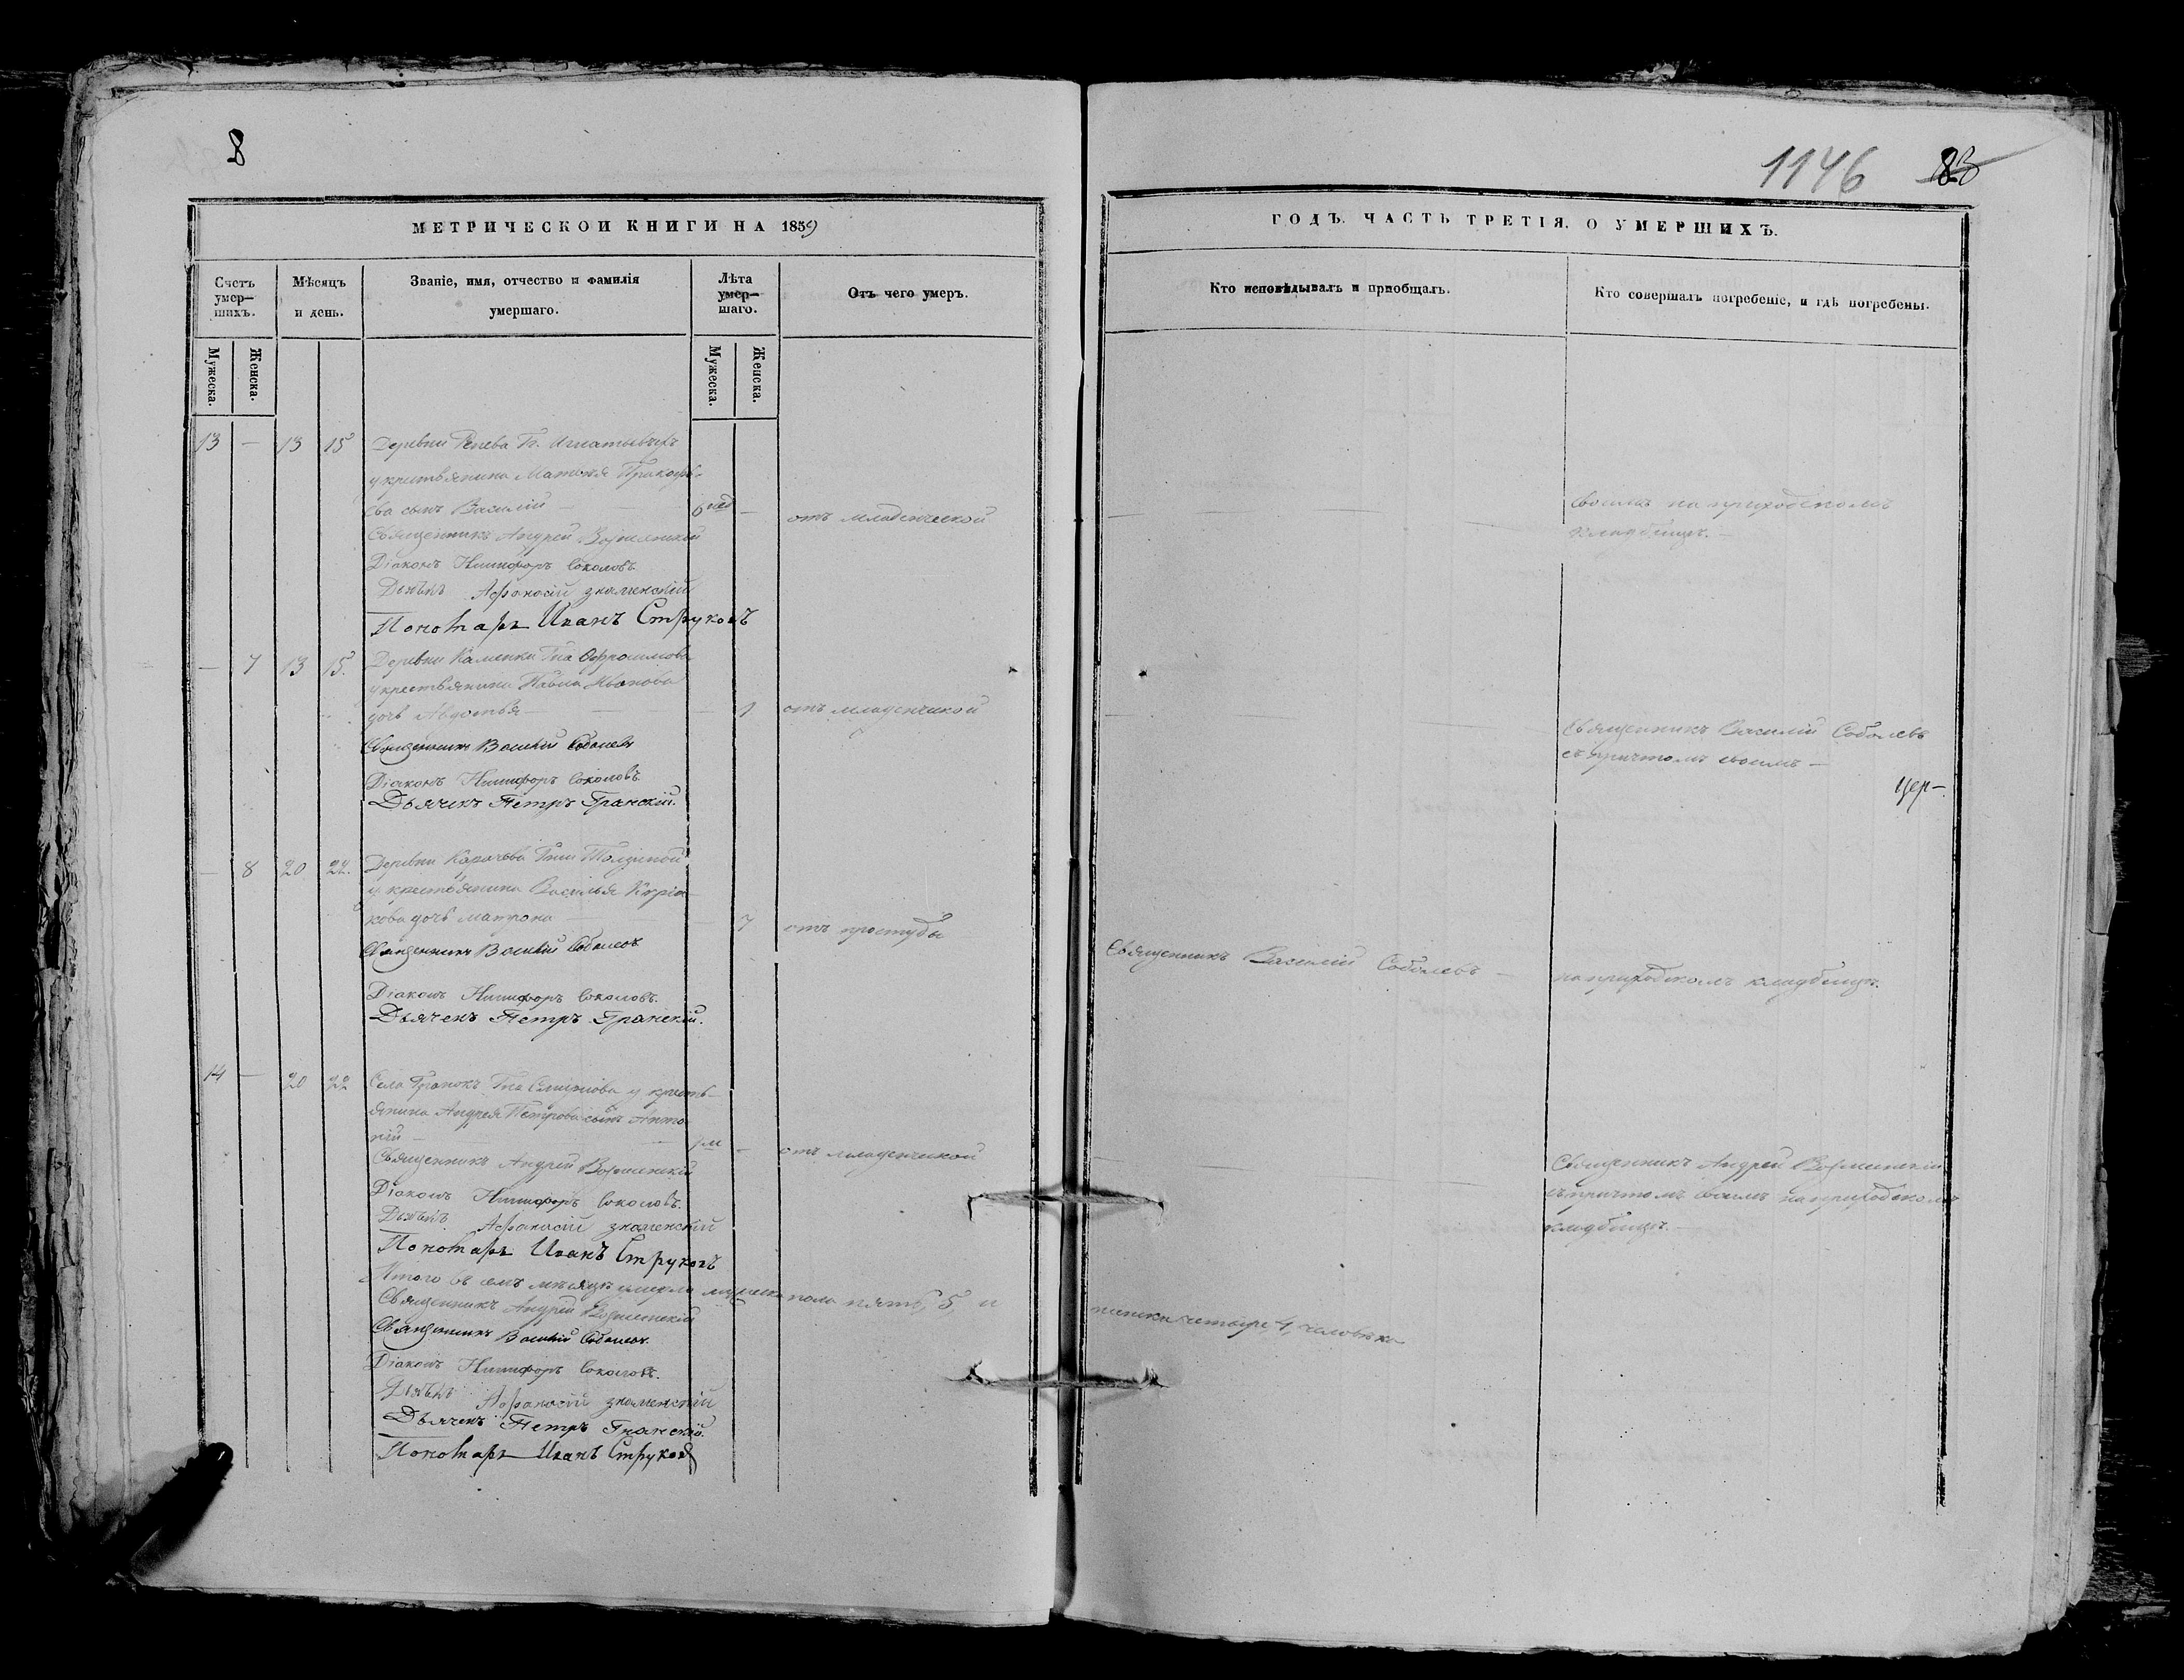 8
1146 83
МЕТРИЧЕСКОЙ КНИГИ НА 1859
ГОДЪ. ЧАСТЬ ТРЕТІЯ, О УМЕРШИХЪ.
Счетъ умер-шихъ.
Мужеска.
Женска.
Мѣсяцъ и день.
Званіе, имя, отчество и фамилія умершаго.
Лѣта умер-шаго.
Мужеска.
Женска.
Отъ чего умеръ.
Кто исповѣдывалъ и пріобщалъ.
Кто совершалъ погребеніе, и гдѣ погребены.
13 — 13 15 Деревни Гг.
у крестьянина Прокофь-
ева сынъ Василій — 6 нед — отъ младенческой
своимъ на приходскомъ
кладбищѣ. —
Священникъ Андрей
Діаконъ Никифоръ Соколовъ.
Афанасій Знаменскій
Пономарь Иванъ Струковъ
— 7 13 15. Деревни Каменки Гна Офросимова
у крестьянина Иванова
дочь Авдотья — 1 отъ младенческой
Священникъ Василій Соболевъ
съ причтомъ своимъ —
цер-
Священникъ Василій Соболевъ
Діаконъ Никифоръ Соколовъ.
Дьячекъ Петръ Гранскій.
— 8 20 22. Деревни Гжи
у крестьянина Василья
кова дочь Матрона — 7 отъ простуды
Священникъ Василій Соболевъ —
на приходскомъ кладбищѣ.
Священникъ Василій Соболевъ
Діаконъ Никифоръ Соколовъ.
Дьячекъ Петръ Гранскій.
14 — 20 22 Села Гна у кресть-
янина Андрея Петрова сынъ Анто-
ній — 1 м — отъ младенческой
Священникъ Андрей
съ причтомъ своимъ на приходскомъ
кладбищѣ. —
Священникъ Андрей
Діаконъ Никифоръ Соколовъ.
Афанасій Знаменскій
Пономарь Иванъ Струковъ
Итого въ семъ мѣсяцѣ умерло мужеска пола пять, 5, и женска четыре, 4, человѣка
Священникъ Андрей
Священникъ Василій Соболевъ.
Діаконъ Никифоръ Соколовъ.
Афанасій Знаменскій
Дьячекъ Петръ Гранскій.
Пономарь Иванъ Струковъ